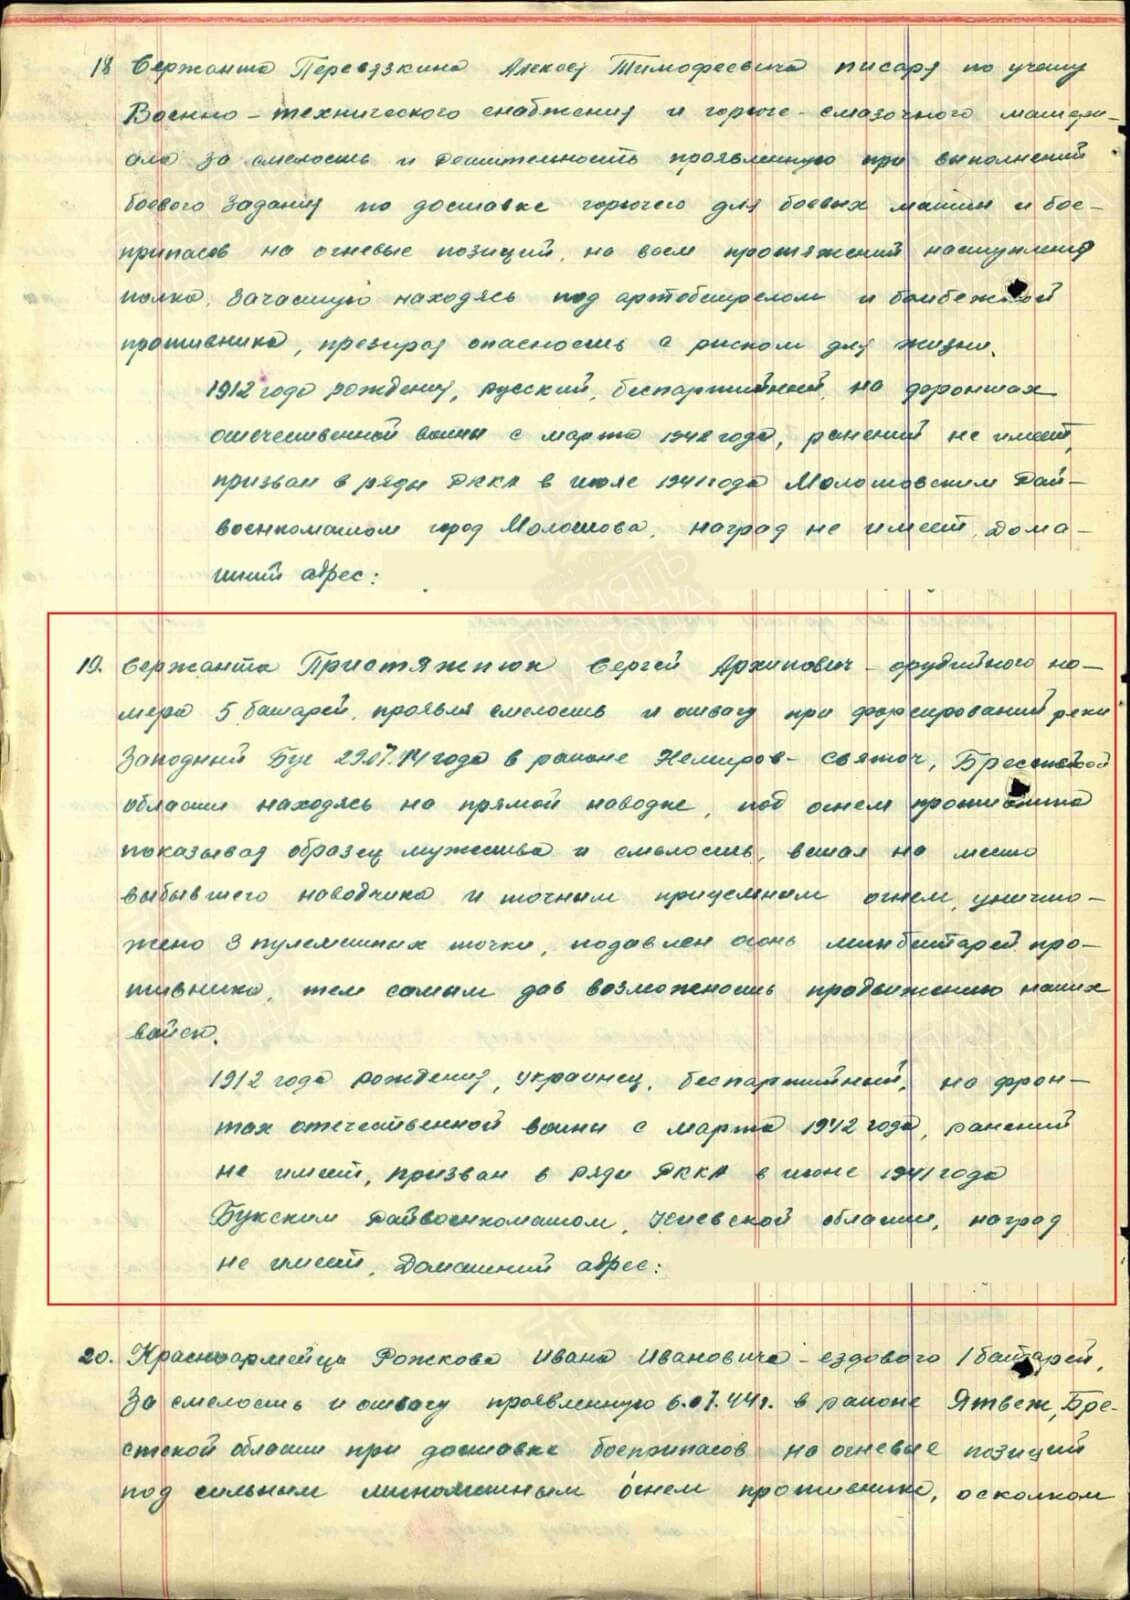 18 Сержанта Перевязкина Алексей Тимофеевича писаря по учету
Военно-технического снабжения и горюче-смазочного матери-
ала за смелость и решительность проявленную при выполнений
боевого задания по доставке горючего для боевых машин и бое-
припасов на огневые позиций, на всем протяжений наступления
полка. Зачастую находясь под артобстрелом и бомбежкой
противника, презирая опасность с риском для жизни.
1912 года рождения, русский, беспартийный, на фронтах
отечественной войны с марта 1942 года, ранений не имеет,
призван в ряды РККА в июле 1941 года Молотовским Рай-
военкоматом город Молотова, наград не имеет, Дома-
шний адрес:
19. Сержанта Пристяжнюк Сергей Архипович - орудийного но-
мера 5 батарей, проявил смелость и отвагу при форсирований реки
Западный Буг 29.07.44 года в районе Немиров- святоч, Брестской
области находясь на прямой наводке, под огнем противника
показывая образец мужества и смелость, встал на место
выбывшего наводчика и точным прицельным огнем, уничто-
жено 3 пулеметных точки, подавлен огонь минбатарей про-
тивника, тем самым дав возможность продвижению наших
войск.
1912 года рождения, украинец, беспартийный, на фрон-
тах отечественной войны с марта 1942 года, ранений
не имеет, призван в ряды РККА в июне 1941 года
Букским Райвоенкоматом, Киевской области, наград
не имеет, Домашний адрес:
20. Красноармейца Рожкова Ивана Ивановича - ездового 1 батарей,
За смелость и отвагу проявленную 6.07.44г. в районе Ятвеж, Бре-
стской области при доставке боеприпасов на огневые позиций
под сильным минометным огнем противника, осколком
ПАМЯТЬ
НАРОДА